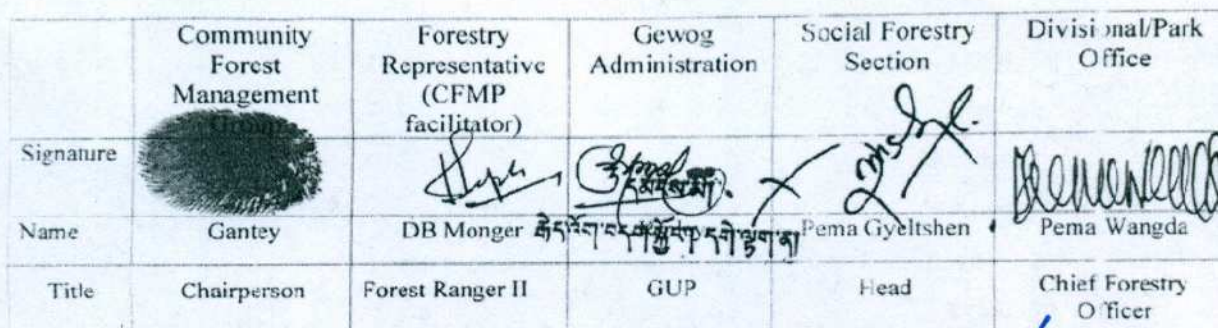 Community Forest Management Group
Forestry Representative (CFMP facilitator)
Gewog Administration
Social Forestry Section
Divisional/Park Office
Signature
Name
Gantey
DB Monger
Pema Gyeltshen
Pema Wangda
Title
Chairperson
Forest Ranger II
GUP
Head
Chief Forestry Officer